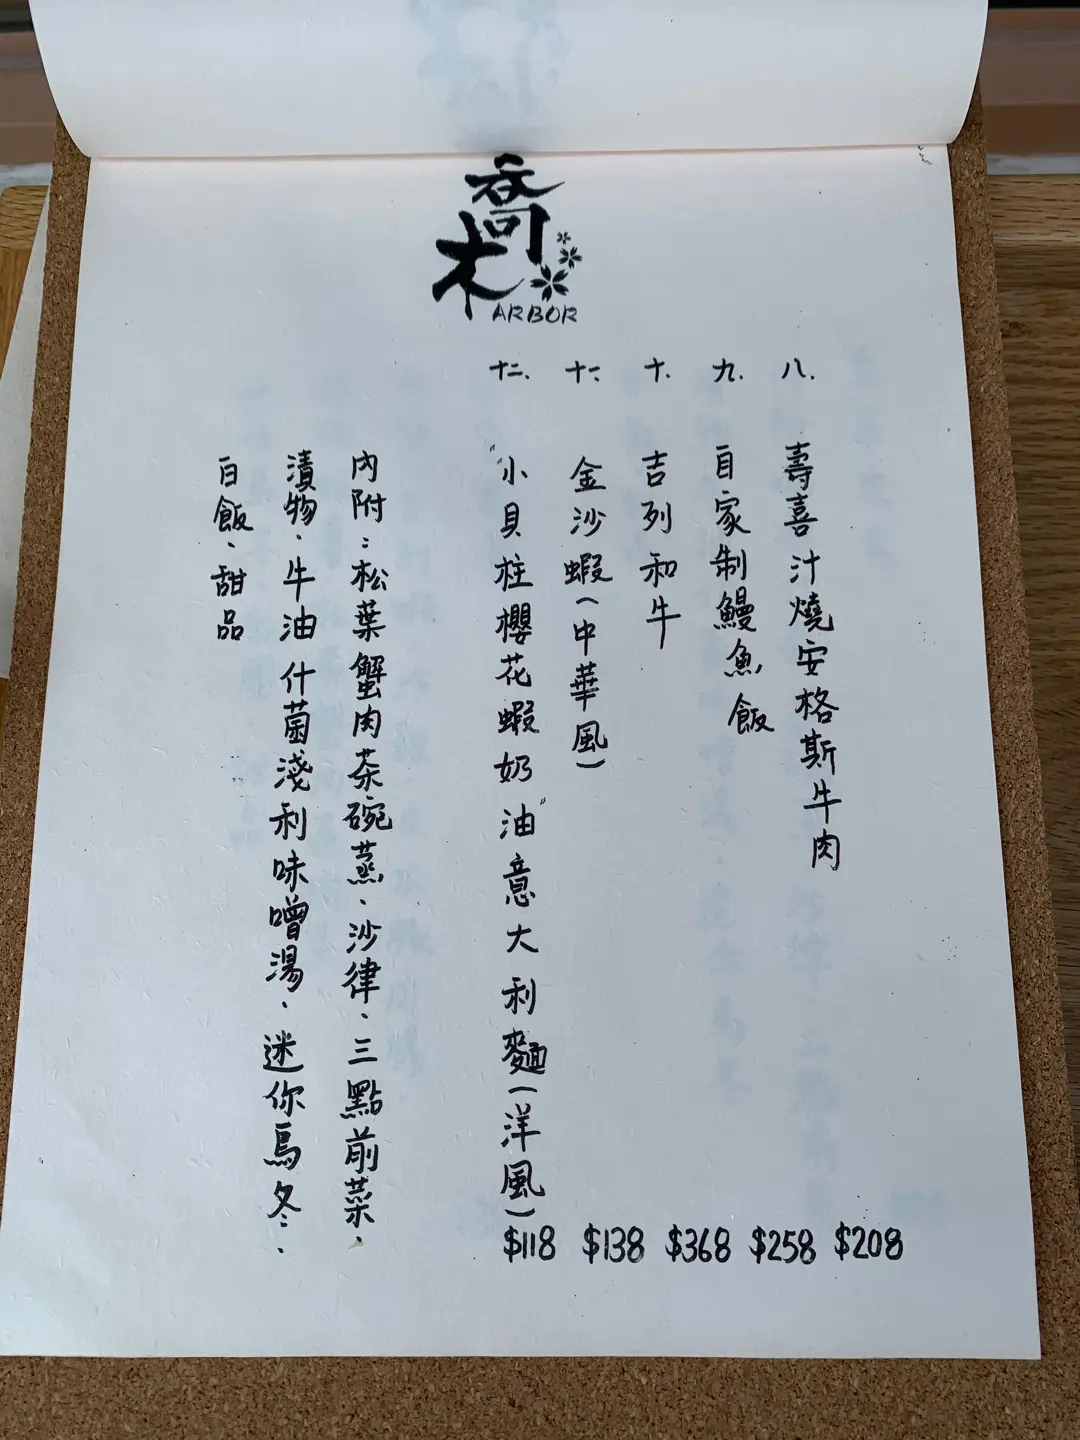 喬木
ARBOR
八. 壽喜汁燒安格斯牛肉 $208
九. 自家制鰻魚飯 $258
十. 吉列和牛 $368
十一. 金沙蝦(中華風) $138
十二. "小貝柱櫻花蝦奶油"意大利麵(洋風) $118
內附：松葉蟹肉茶碗蒸、沙律、三點前菜、
漬物、牛油什菌淺利味噌湯、迷你烏冬、
白飯、甜品